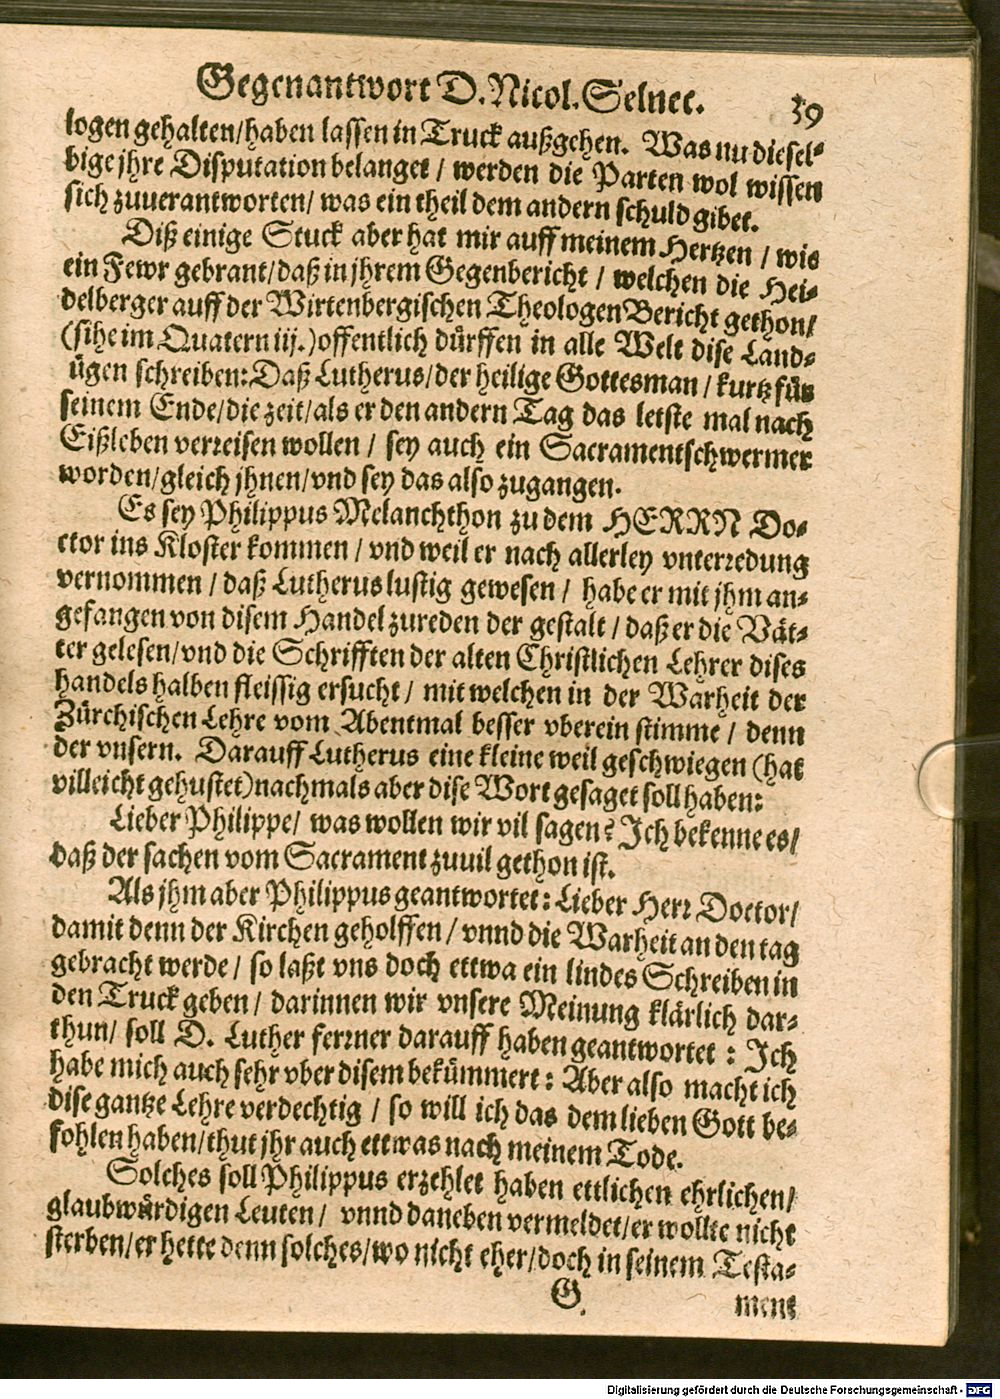 Gegenantwort D. Nicol. Selnec. 39
logen gehalten/haben lassen in Truck außgehen. Was nu diesel-
bige jhre Disputation belanget / werden die Parten wol wissen
sich zuuerantworten/ was ein theil dem andern schuld gibet.
Diß einige Stuck aber hat mir auff meinem Hertzen / wie
ein Fewr gebrant/daß in jhrem Gegenbericht / welchen die Hei-
delberger auff der Wirtenbergischen Theologen Bericht gethon/
(sihe im Quatern iij.) offentlich dürffen in alle Welt dise Land-
ügen schreiben: Daß Lutherus/der heilige Gottesman / kurtz für
seinem Ende/die zeit/als er den andern Tag das letste mal nach
Eißleben verreisen wollen / sey auch ein Sacramentschwermer
worden/gleich jhnen/vnd sey das also zugangen.
Es sey Philippus Melanchthon zu dem HERRN Do-
ctor ins Kloster kommen / vnd weil er nach allerley vnterredung
vernommen / daß Lutherus lustig gewesen / habe er mit jhm an-
gefangen von disem Handel zureden der gestalt / daß er die Vät-
ter gelesen/vnd die Schrifften der alten Christlichen Lehrer dises
handels halben fleissig ersucht / mit welchen in der Warheit der
Zürchischen Lehre vom Abentmal besser vberein stimme / denn
der vnsern. Darauff Lutherus eine kleine weil geschwiegen (hat
villeicht gehustet) nachmals aber dise Wort gesaget soll haben:
Lieber Philippe/ was wollen wir vil sagen? Jch bekenne es/
daß der sachen vom Sacrament zuuil gethon ist.
Als jhm aber Philippus geantwortet: Lieber Herr Doctor/
damit denn der Kirchen geholffen / vnnd die Warheit an den tag
gebracht werde / so laßt vns doch ettwa ein lindes Schreiben in
den Truck geben / darinnen wir vnsere Meinung klärlich dar-
thun/ soll D. Luther ferrner darauff haben geantwortet : Jch
habe mich auch sehr vber disem bekümmert: Aber also macht ich
dise gantze Lehre verdechtig / so will ich das dem lieben Gott be-
fohlen haben/thut jhr auch ettwas nach meinem Tode.
Solches soll Philippus erzehlet haben ettlichen ehrlichen/
glaubwürdigen Leuten / vnnd daneben vermeldet/er wollte nicht
sterben/er hette denn solches/wo nicht eher/doch in seinem Testa-
G. ment
Digitalisierung gefördert durch die Deutsche Forschungsgemeinschaft - DFG